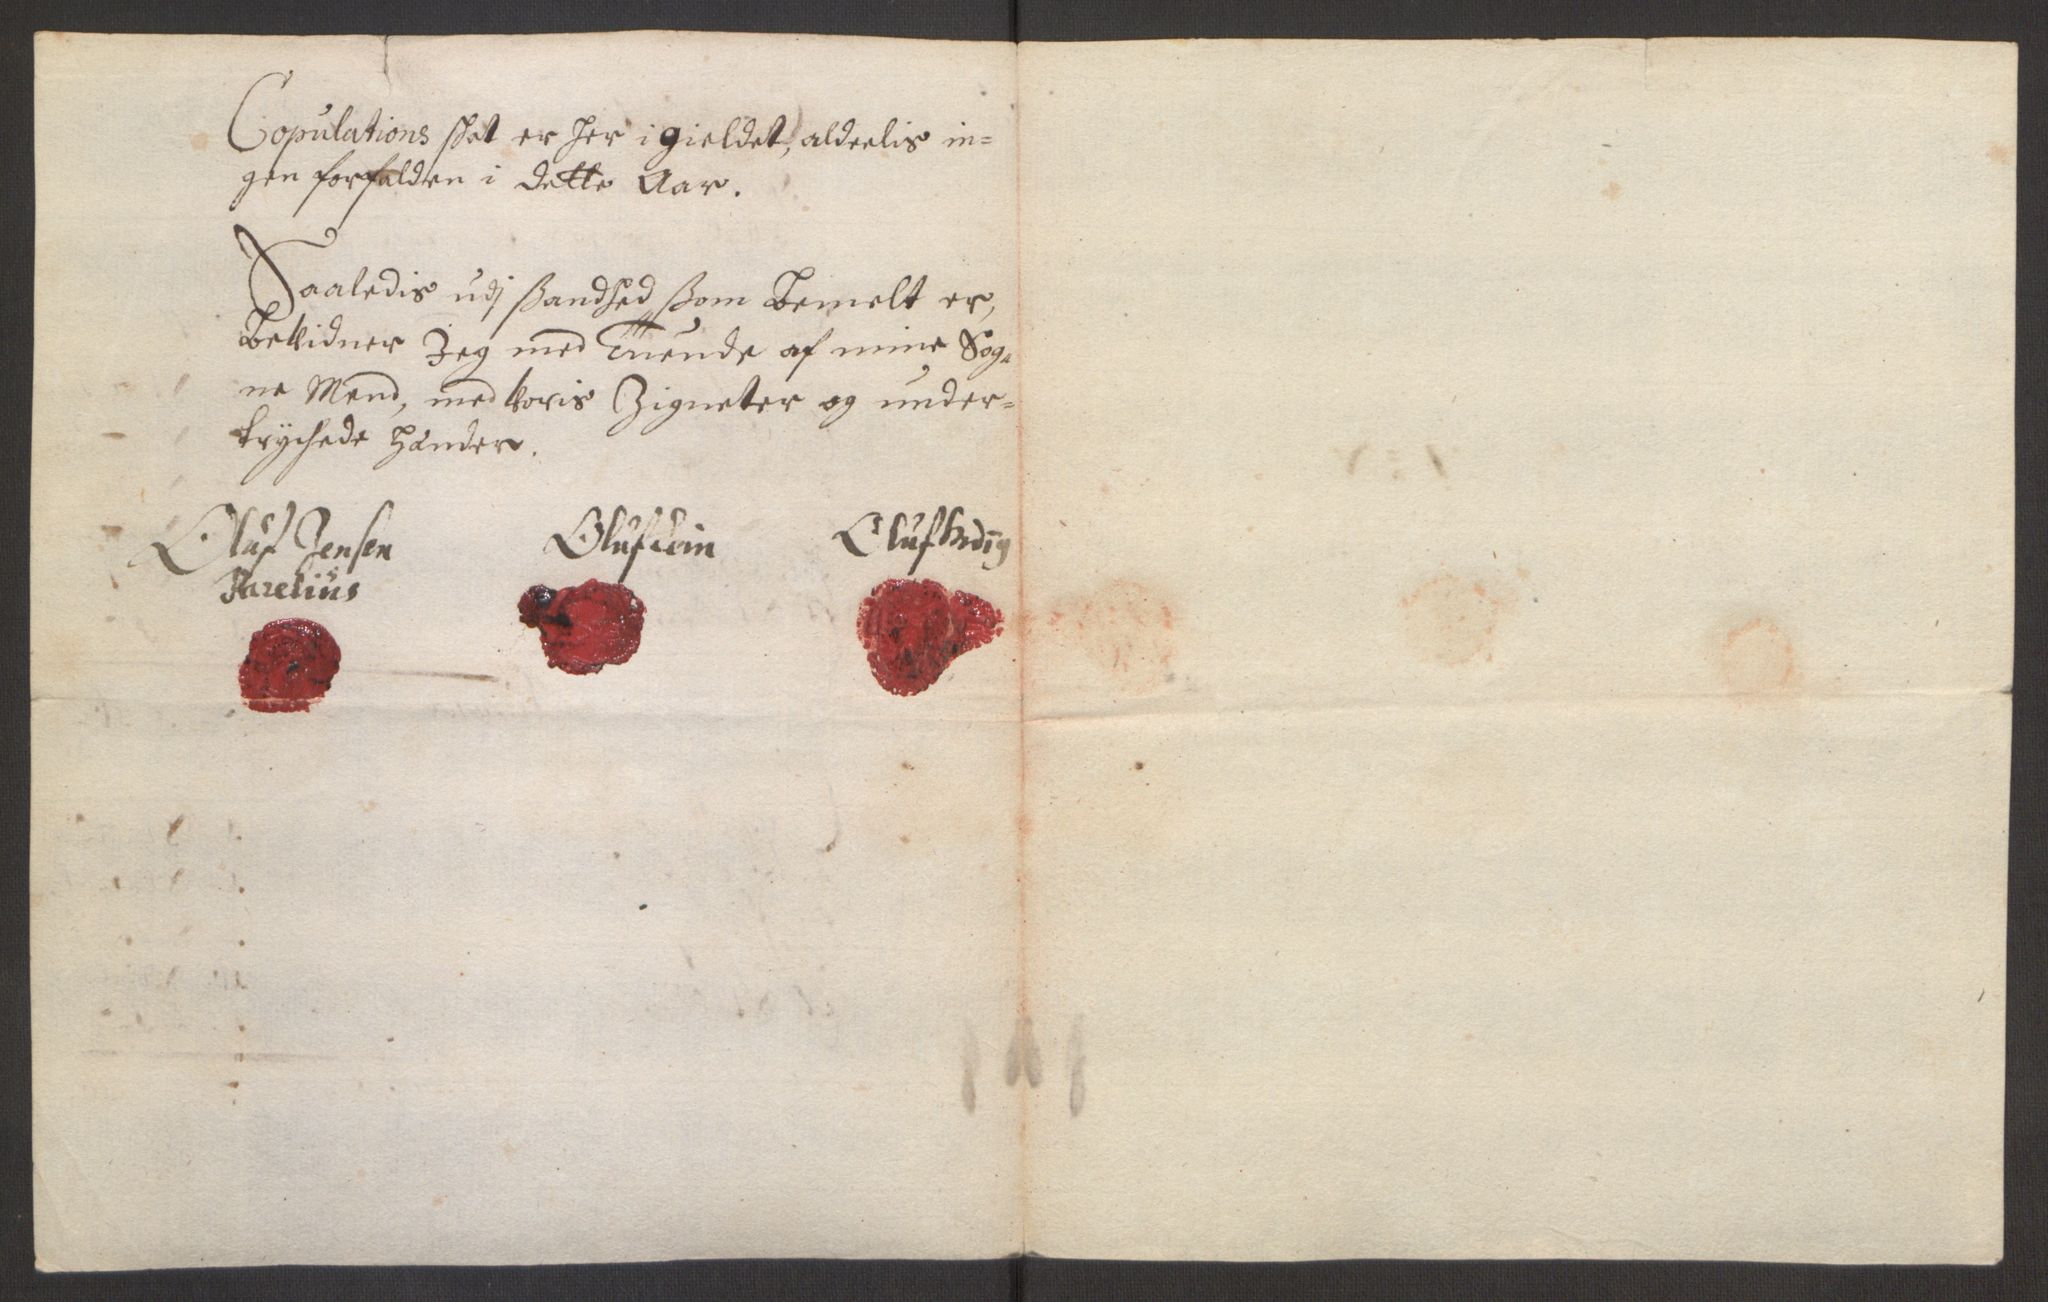 Copulations skat er her i gieldet, aldeelis in=
gen forfalden i dette Aar.
Saaledis udj Sandhed, som bemelt er,
bekidner Jeg med Tuende af mine Sog=
ne Mend, med voris Zigneter og under=
trychede hænder.
Oluf Jensen Oluf Oluf